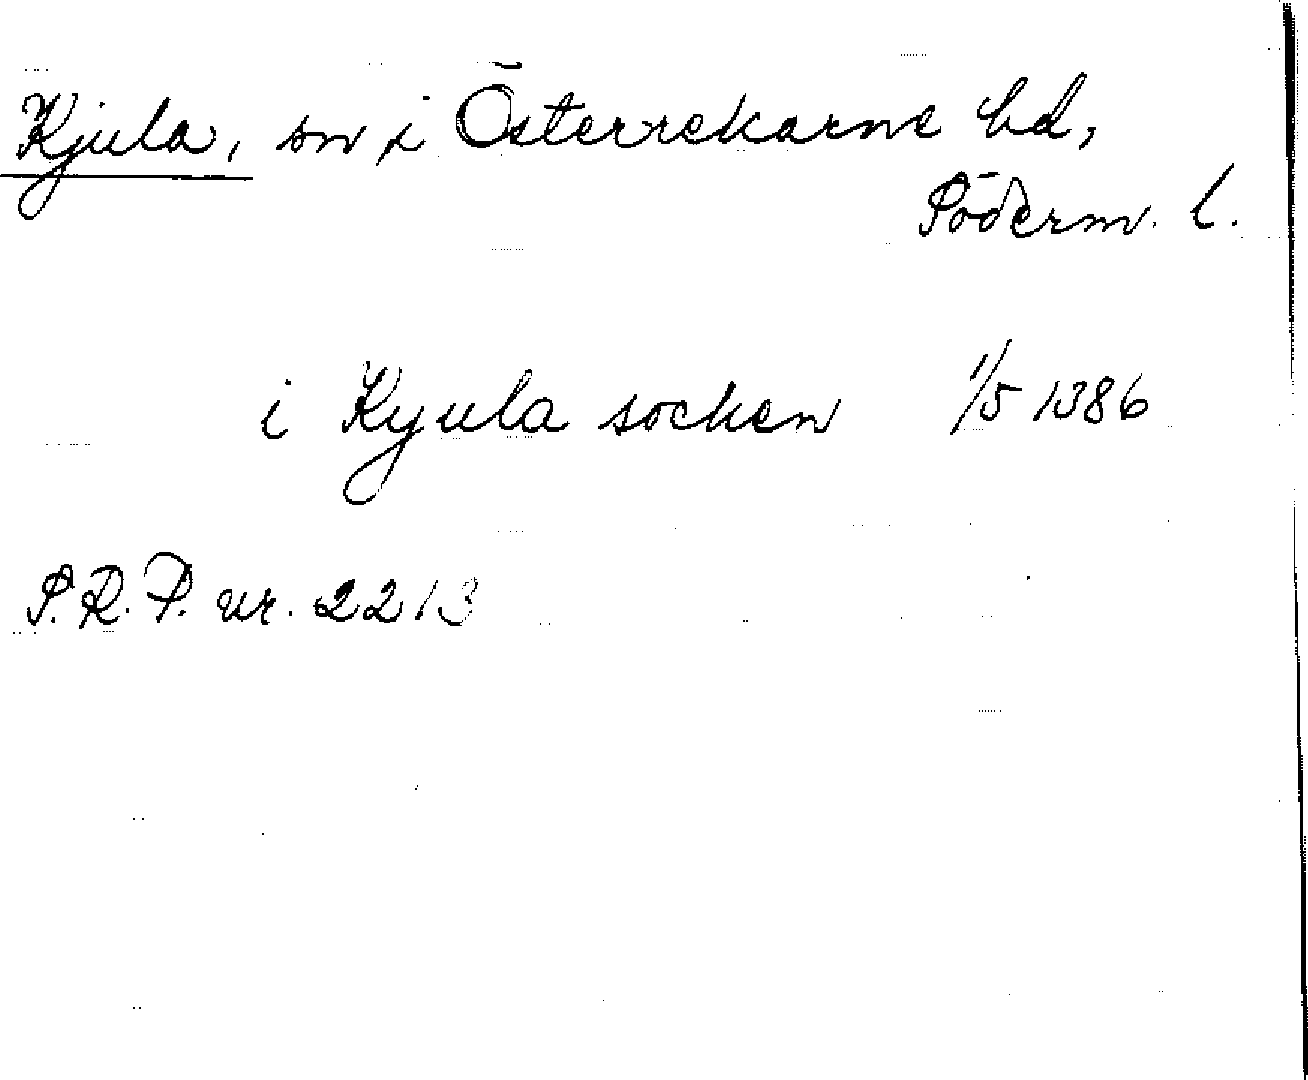 Kjula, sn i Österrekarne hd,
Söderm. l.
i Kyula socken 1/5 1386
S.R.P. nr. 2213